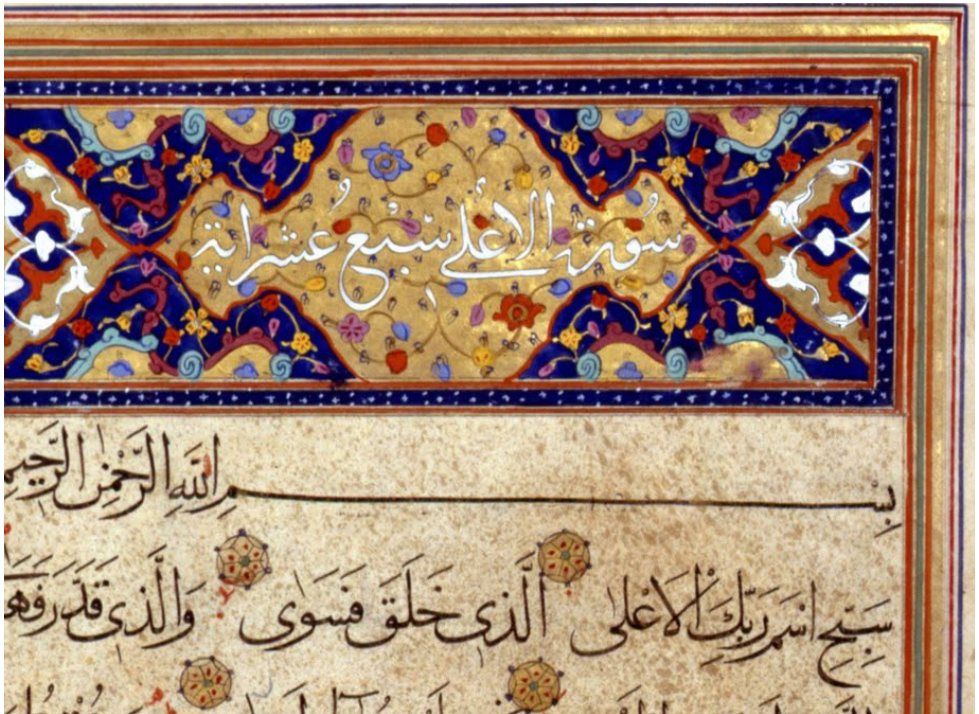 سُورة الأعلى سَبْع عُشر اية
بِسْمِ اللّٰهِ الرَّحْمٰنِ الرَّحِيمِ
سَبِّحِ اسْمَ رَبِّكَ الْاَعْلَى الَّذِى خَلَقَ فَسَوٰى وَالَّذِى قَدَّرَ